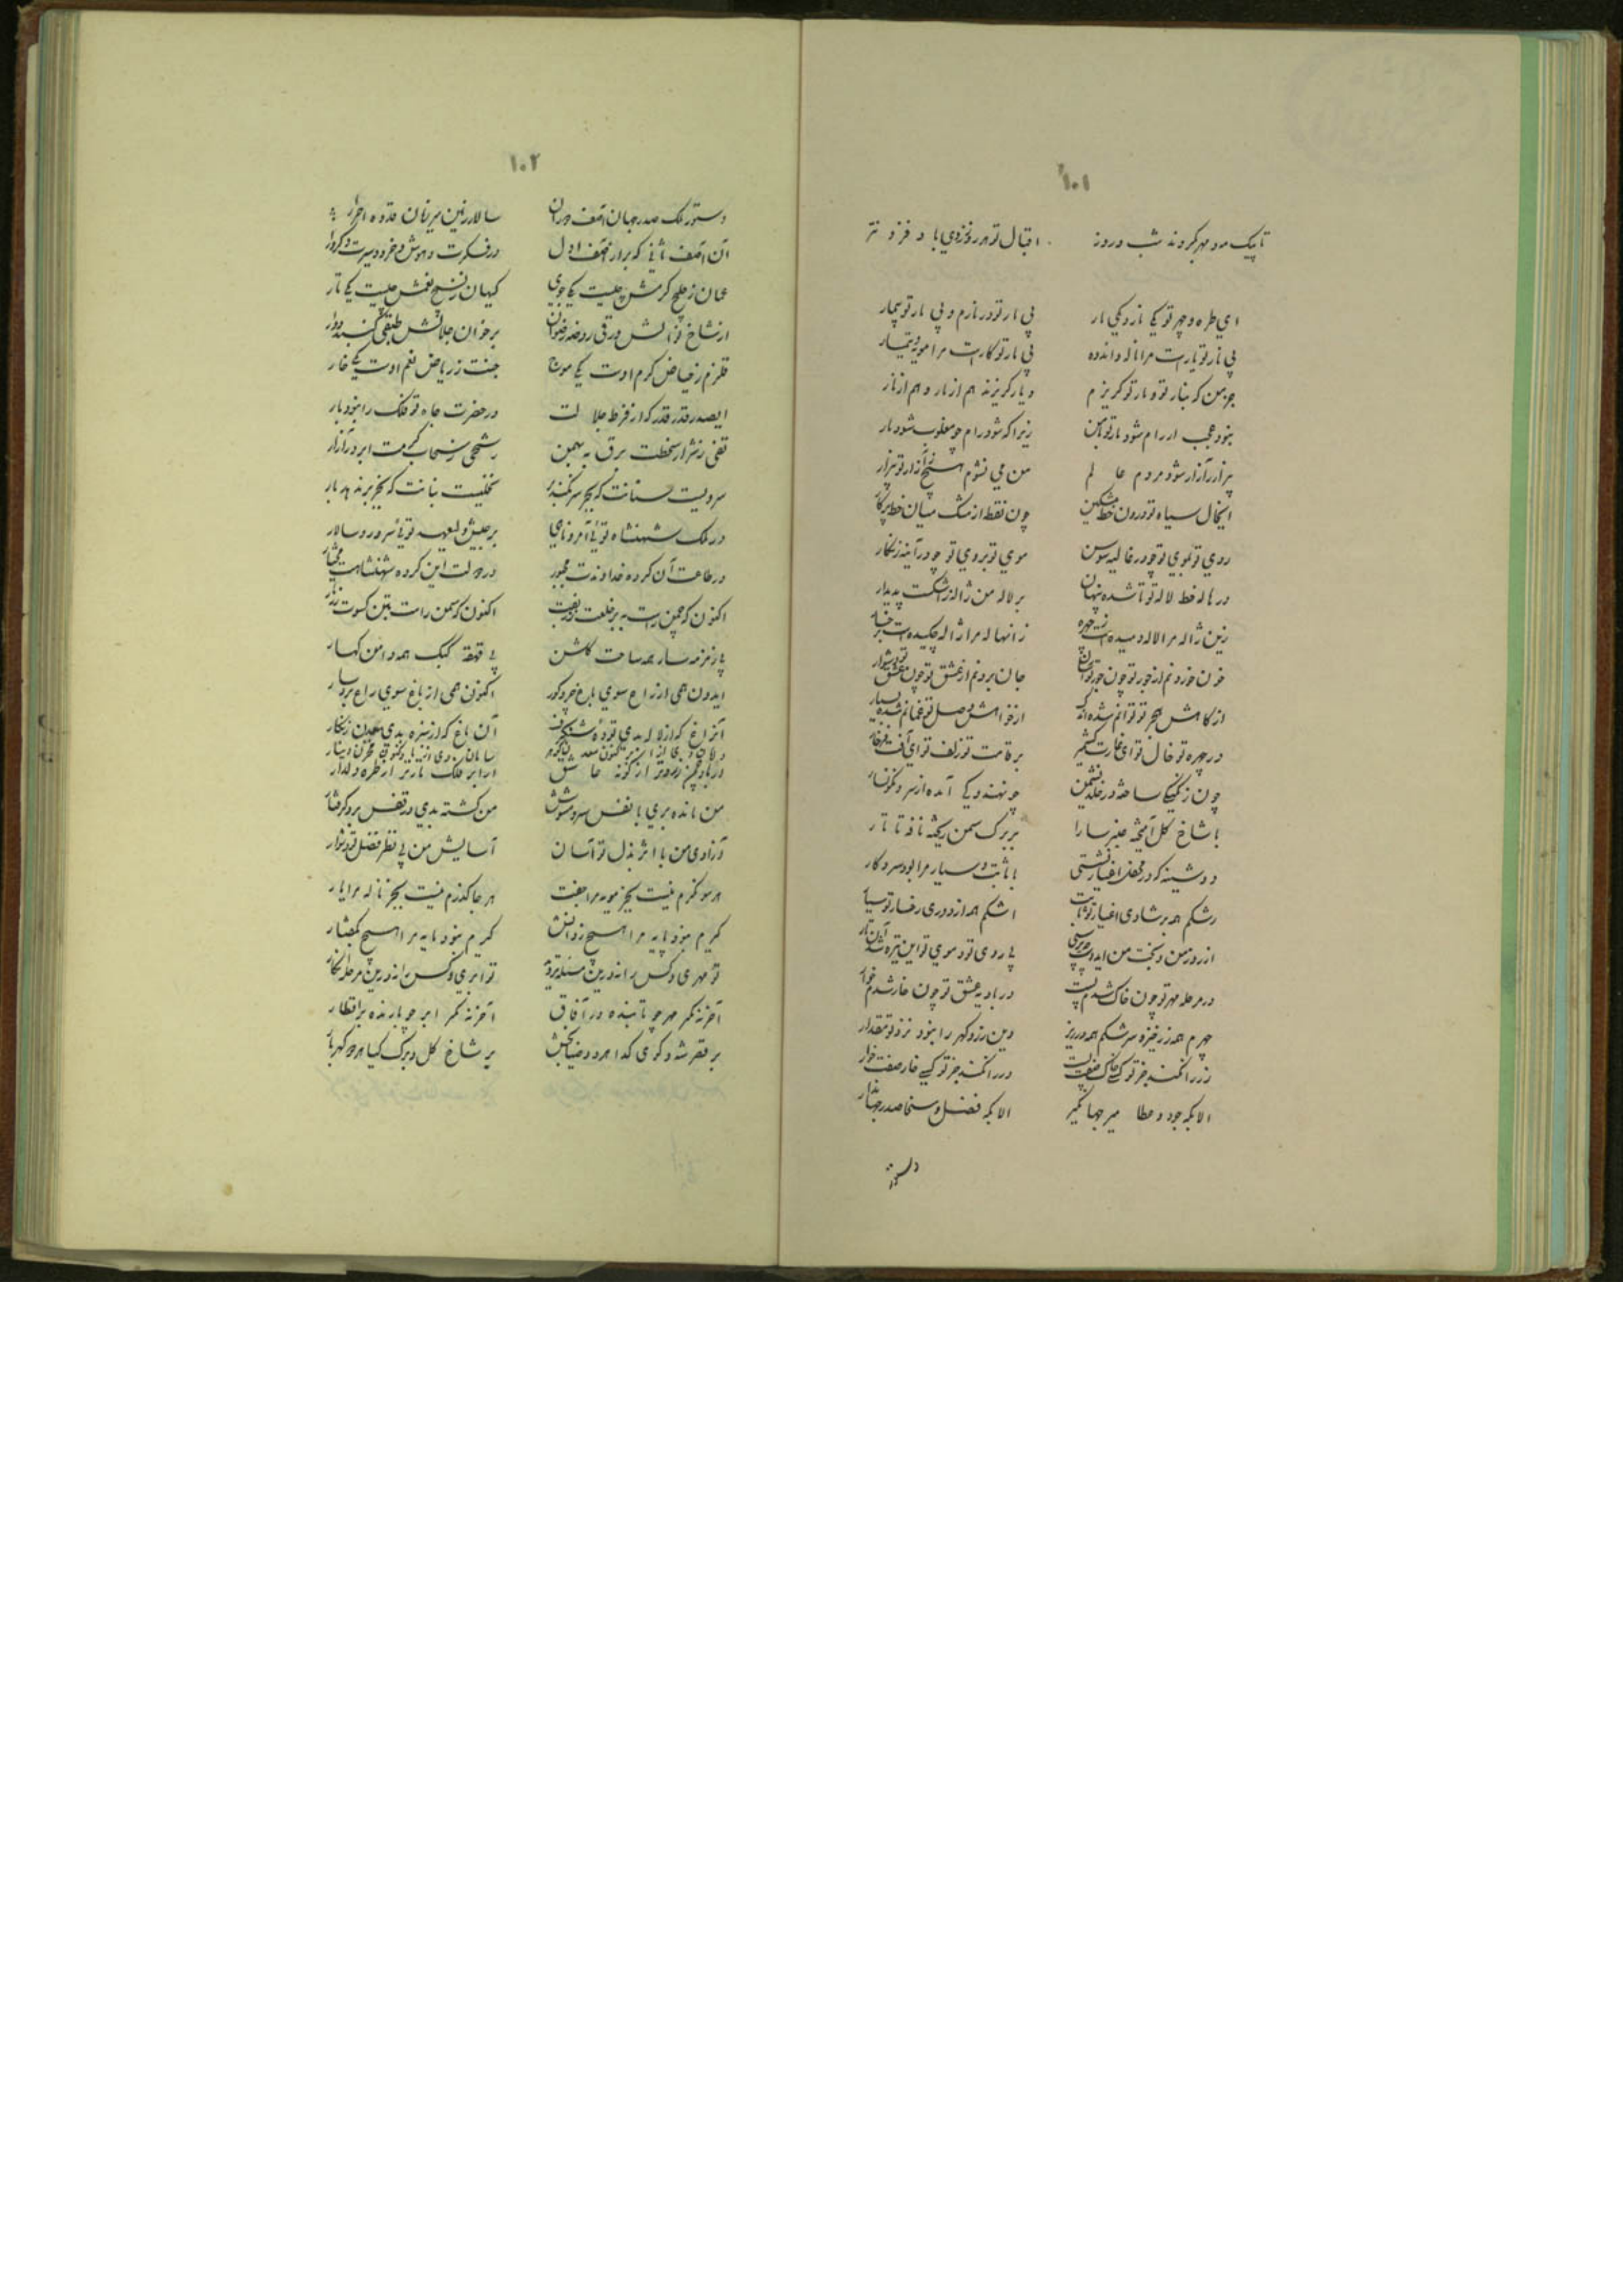 ١٠١
تا پیک مه و مهر بگردند شب و روز اقبال تو هر روز ز دی باد فزون تر
ای طره و چهر تو یکی نار و یکی مار
بی نار تو یارست مرا ناله و انده بی مار تو کارست مرا مویه و تیمار
جز من که بنار تو و مار تو گریزم دیار گریزند هم از مار و هم از نار
نبود عجب ار رام شود مار تو با من زیرا که شود رام چو مغلوب شود مار
بیزار ز آزار شود مردم عالم من می نشوم هیچ ز آزار تو بیزار
این خال سیاه تو درون خط مشکین چون نقطه از مشک میان خط پرگار
روی تو بموی تو چو در غالیه سوسن موی تو بروی تو چو در آینه زنگار
در هاله خط لاله تو تا شده پنهان بر لاله من ژاله ز اشکست پدیدار
زین ژاله مرا لاله دمیده است ز چهره زان هاله مرا ژاله چکیده است برخسار
خون خوردنم از جور تو چون جور تو آسان جان بردنم از عشق تو چون عشق تو دشوار
از کاهش هجر تو توانم شده اندک از خواهش وصل تو غمانم شده بسیار
در چهره تو خال تو ای غارت کشمیر بر قامت تو زلف تو ای آفت فرخار
چون زنگیکی ساخته در خلد نشیمن چو هندویکی آمده از سرو نگونسار
با شاخ گل آمیخته عنبر سارا بر برگ سمن ریخته نافه تاتار
دوشینه که در محفل اغیار نشستی با ثابت و سیار مرا بود سر و کار
رشکم همه بر شادی اغیار تو ثابت اشکم همه از دوری رخسار تو سیار
از روز من و بخت من ایدوست چه پرسی بی روی تو و موی تو این تیره شد آن تار
در مرحله مهر تو چون خاک شدم پست در بادیه عشق تو چون خار شدم خوار
چهرم همه زر خیزد و سرشکم همه در ریز وین زر و گهر را نبود نزد تو مقدار
زر را نکند جز تو کسی خاک صفت پست در را نکند جز تو کسی خار صفت خوار
الا بگه جود و عطا میر جهانگیر الا بگه فضل و سخا صدر جهاندار
دستور
١٠٢
دستور ملک صدر جهان آصف دوران سالار زمین میر زمان قدوه احرار
آن آصف ثانی که بر از آصف اول در فکرت و هوش و خرد و سیرت و کردار
عمان ز خلیج کرمش چیست یکی جوی کیهان ز نسیج نعمش چیست یکی تار
از شاخ نوالش ورقی روضه رضوان بر خوان جلالش طبقی گنبد دوار
قلزم ز حیاض کرم اوست یکی موج جنت ز ریاض نعم اوست یکی خار
ای صدر قدر قدر که از فرط جلالت در حضرت جاه تو فلک را نبود بار
تفی ز شرار سخطت برق به بهمن رشحی ز سحاب کرمت ابر در آزار
سرویست سنانت که بجز سر نکند بر نخلیست بنانت که بجز بر ندهد بار
در ملک شهنشاه توئی آمر و ناهی بر جیش ولیعهد توئی سرور و سالار
در طاعت آن کرده خداوندت مجبور در دولت این کرده شهنشاهت مختار
اکنون که چمن راست به بر خلعت زربفت اکنون که سمن راست بتن کسوت زرتار
بی زمزمه سار همه ساحت گلشن بی قهقهه کبک همه دامن کهسار
ایدون همی از راغ سوی باغ
اکنون همی از باغ سوی راغ
آن راغ که از لاله بدی توده شنگرف آن باغ که از سبزه بدی معدن زنگار
من مانده بری با نفس سرد مشوش من گشته بدی در قفس برد گرفتار
آزادی من با اثر بذل تو آسان آسایش من بی نظر فضل تو دشوار
هر سو نگرم نیست بجز مویه مرا جفت هر جا گذرم نیست بجز ناله مرا یار
گیرم نبود پایه مرا هیچ ز دانش گیرم نبود مایه مرا هیچ بگفتار
آخر نه مگر مهر چو تابنده در آفاق آخر نه مگر ابر چو بارنده بر اقطار
بر قصر شه و کوی گدا هر دو ضیابخش بر شاخ گل و برگ گیا هر دو گهربار